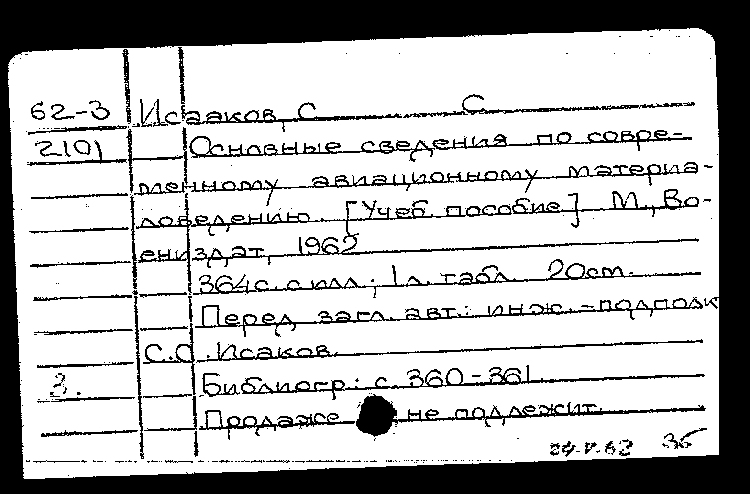 62-3 Исааков, С С
2101 Основные сведения по совре-
менному авиационному материа-
ловедению. [Учеб. пособие] М., Во-
ениздат, 1962
364с. с илл.; 1 л. табл. 20cm.
Перед загл. авт.: инж.-подполк
С.С. Исаков.
3. Библиогр.: с. 360-361
Продаже не подлежит.
24.V.62 35